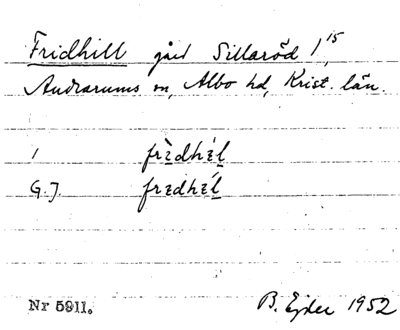 Fridhill gård Sillaröd 1¹⁵
Andrarums sn, Albo hd, Krist. län.
1 frèdhél
G.J. fredhél
Nr 5911.
B. Ejder 1952